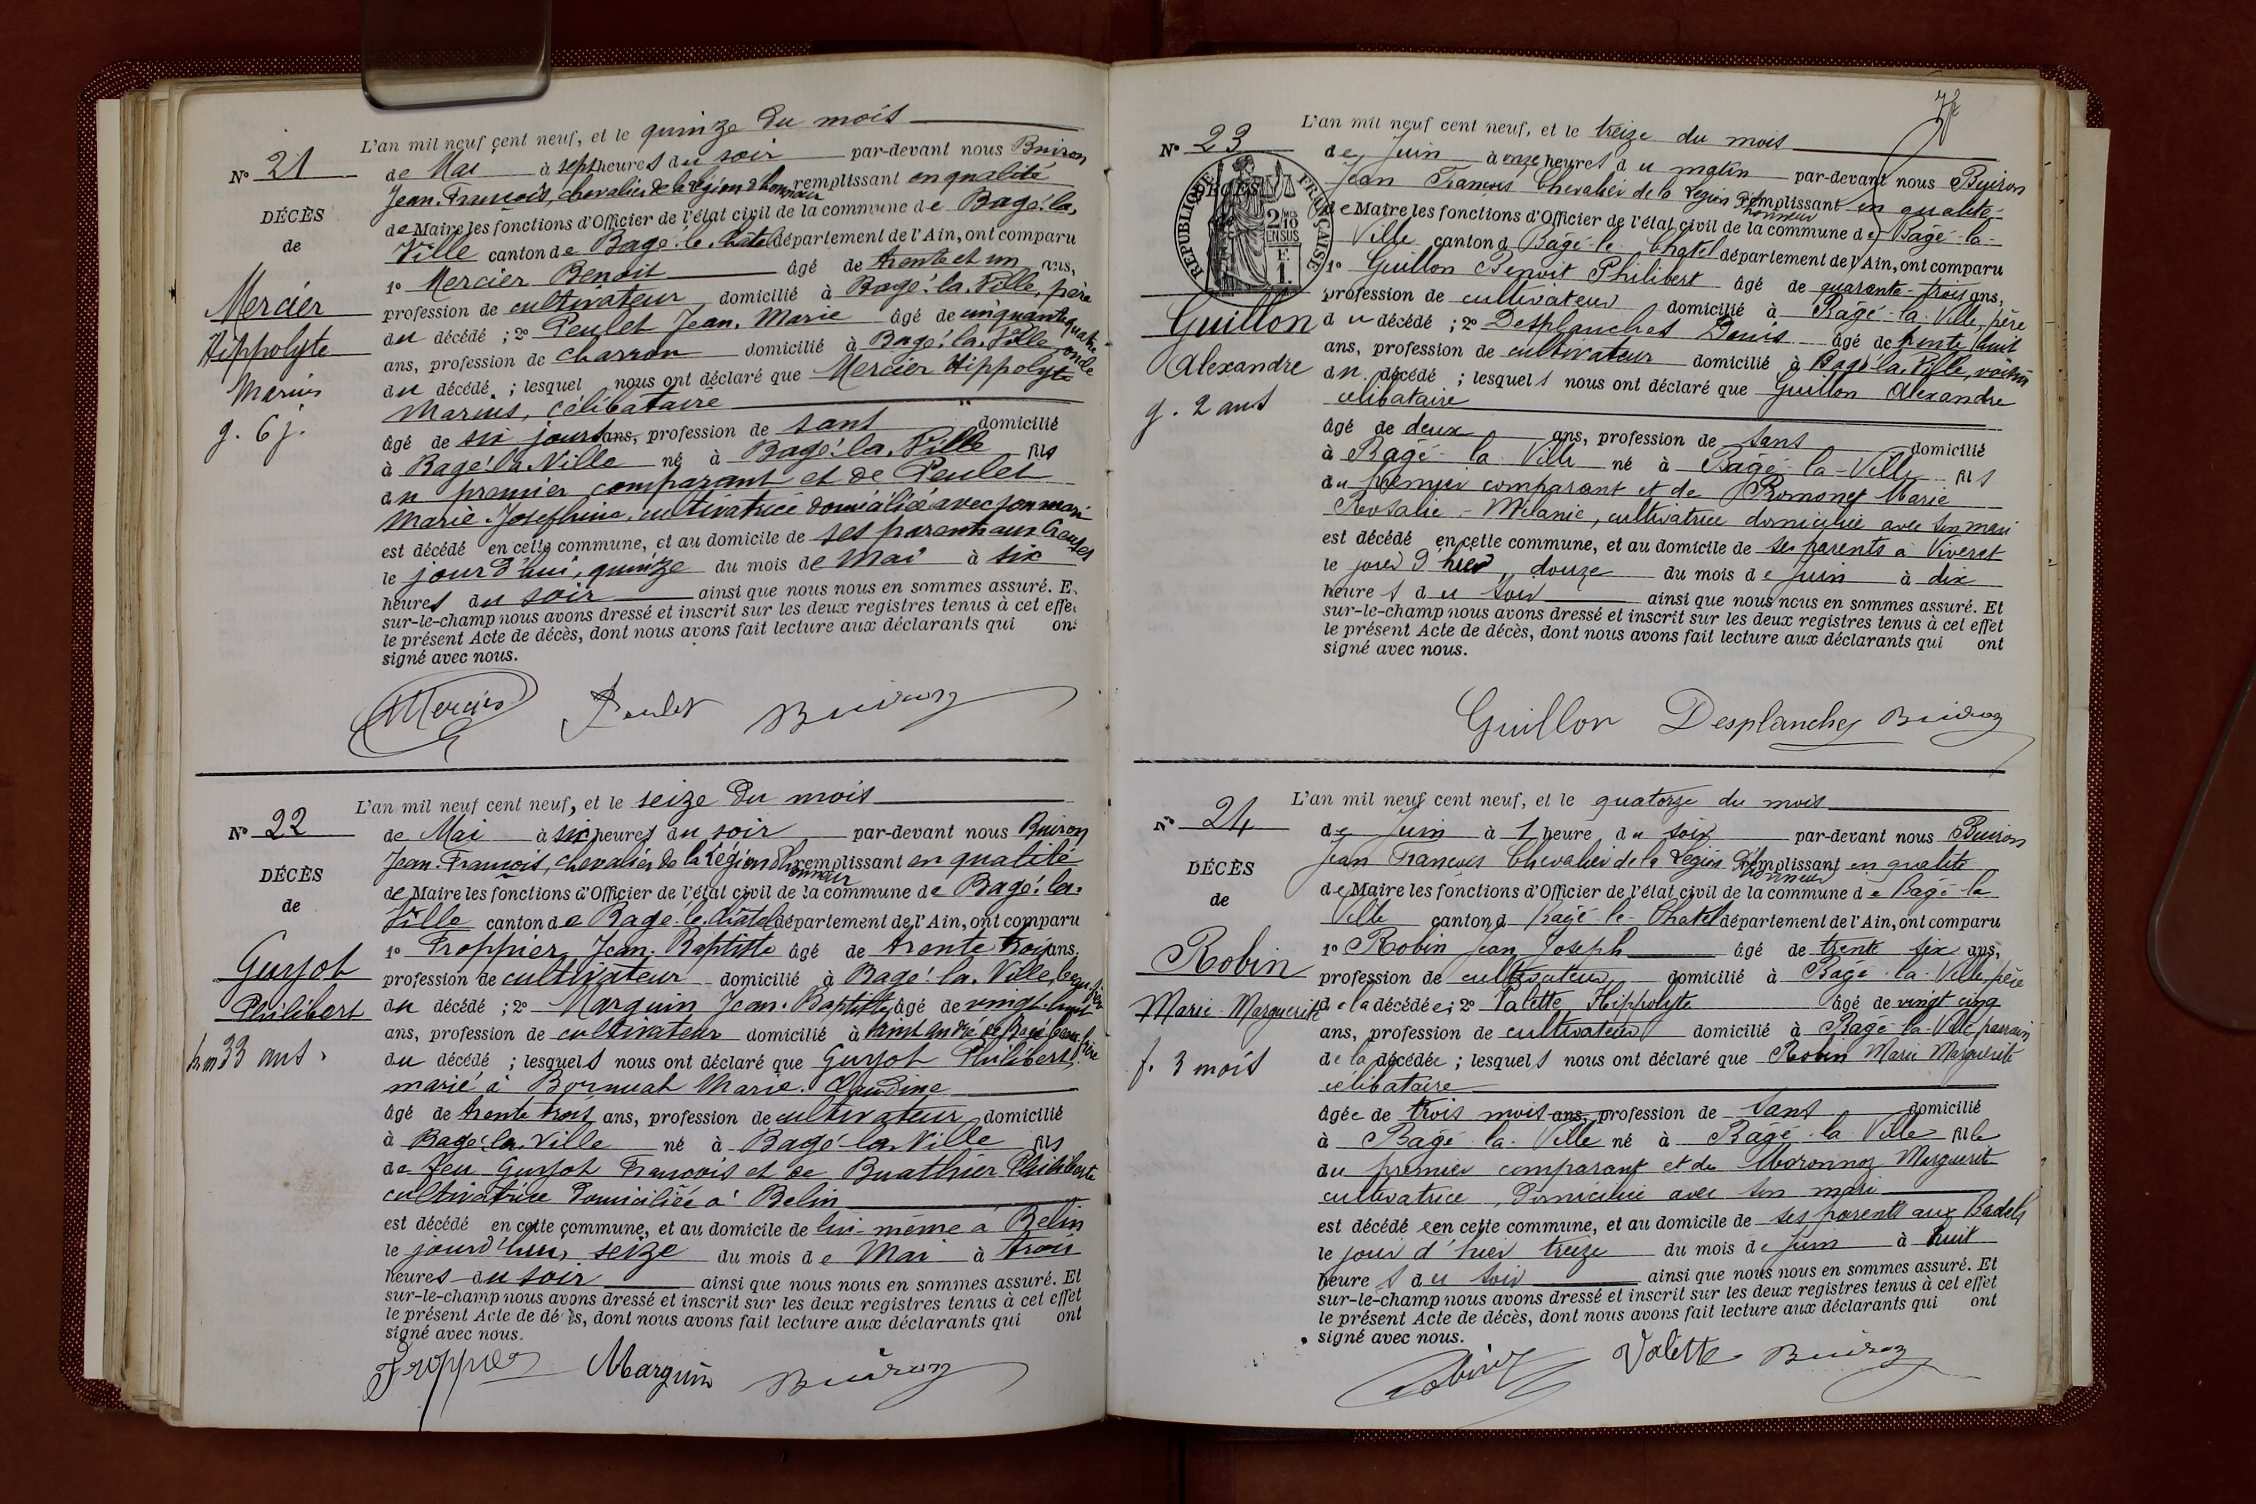 L'an mil neuf cent neuf, et le quinze du mois
N° 21
de Mai à sept heures du soir par-devant nous Buiron
Jean-François, chevalier de la légion d'honneur remplissant en qualité
DÉCÈS
de Maire les fonctions d'Officier de l'état civil de la commune de Bagé-la-
de
Ville canton de Bagé-le-Châtel département de l'Ain, ont comparu
1° Mercier Benoit âgé de trente et un ans,
Mercier
profession de cultivateur domicilié à Bagé-la-Ville, père
Hippolyte
du décédé ; 2° Peulet Jean-Marie âgé de cinquante quatre
ans, profession de charron domicilié à Bagé-la-Ville, oncle
Marius
du décédé ; lesquel nous ont déclaré que Mercier Hippolyte
Marius, célibataire
g. 6 j.
âgé de six jours ans, profession de sans domicilié
à Bagé-la-Ville né à Bagé-la-Ville fils
du premier comparant et de Peulet
Marie-Josephine, cultivatrice domiciliée avec son mari
est décédé en cette commune, et au domicile de ses parents aux Greuses
le jourd'hui, quinze du mois de Mai à six
heures du soir ainsi que nous nous en sommes assuré. E
sur-le-champ nous avons dressé et inscrit sur les deux registres tenus à cet effe
le présent Acte de décès, dont nous avons fait lecture aux déclarants qui on
signé avec nous.
Mercier Peulet Buiron
L'an mil neuf cent neuf, et le seize du mois
N° 22
de Mai à six heures du soir par-devant nous Buiron
Jean-François, chevalier de la légion d'honneur remplissant en qualité
DÉCÈS
de Maire les fonctions d'Officier de l'état civil de la commune de Bagé-la-
de
Ville canton de Bagé-le-Châtel département de l'Ain, ont comparu
1° Froppier Jean-Baptiste âgé de trente trois ans,
Guyot
profession de cultivateur domicilié à Bagé-la-Ville, beau-frère
Philibert
du décédé ; 2° Marguin Jean-Baptiste âgé de vingt-huit
ans, profession de cultivateur domicilié à Saint André de Bagé beau frère
h m 33 ans
du décédé ; lesquels nous ont déclaré que Guyot Philibert,
marié à Bornuat Marie-Claudine
âgé de trente trois ans, profession de cultivateur domicilié
à Bagé-la-Ville né à Bagé-la-Ville fils
de feu Guyot François et de Buathier Philiberte
cultivatrice domiciliée à Belin
est décédé en cette commune, et au domicile de lui-même à Belin
le jourd'hui, seize du mois de Mai à trois
heures du soir ainsi que nous nous en sommes assuré. Et
sur-le-champ nous avons dressé et inscrit sur les deux registres tenus à cet effet
le présent Acte de décès, dont nous avons fait lecture aux déclarants qui ont
signé avec nous.
Froppier Marguin Buiron
L'an mil neuf cent neuf, et le treize du mois
N° 23
de Juin à onze heures du matin par-devant nous Buiron
Jean François Chevalier de la Légion d'honneur remplissant en qualité
RÉPUBLIQUE FRANÇAISE
de Maire les fonctions d'Officier de l'état civil de la commune de Bagé-la-
2/10 EN SUS
Ville canton d Bâgé-le-Chatel département de l'Ain, ont comparu
F. 1.
1° Guillon Benoit Philibert âgé de quarante-trois ans,
profession de cultivateur domicilié à Bâgé-la-Ville, père
Guillon
du décédé ; 2° Desplanches Denis âgé de trente huit
ans, profession de cultivateur domicilié à Bagé-la-Ville, voisin
Alexandre
du décédé ; lesquels nous ont déclaré que Guillon Alexandre
g. 2 ans
célibataire
âgé de deux ans, profession de sans domicilié
à Bâgé-la-Ville né à Bâgé-la-Ville fils
du premier comparant et de Romonet Marie
Rosalie-Mélanie, cultivatrice domiciliée avec son mari
est décédé en cette commune, et au domicile de ses parents à Viveret
le jour d'hier, douze du mois de Juin à dix
heures du soir ainsi que nous nous en sommes assuré. Et
sur-le-champ nous avons dressé et inscrit sur les deux registres tenus à cet effet
le présent Acte de décès, dont nous avons fait lecture aux déclarants qui ont
signé avec nous.
Guillon Desplanches Buiron
L'an mil neuf cent neuf, et le quatorze du mois
N° 24
de Juin à 1 heure du soir par-devant nous Buiron
Jean François Chevalier de la Légion d'honneur remplissant en qualité
DÉCÈS
de Maire les fonctions d'Officier de l'état civil de la commune de Bagé-la
de
Ville canton d Bagé-le-Chatel département de l'Ain, ont comparu
1° Robin Jean Joseph âgé de trente six ans,
Robin
profession de cultivateur domicilié à Bagé-la-Ville, père
Marie-Marguerite
de la décédée ; 2° Valette Hippolyte âgé de vingt cinq
ans, profession de cultivateur domicilié à Bâgé-la-Ville, parrain
f. 3 mois
de la décédée ; lesquels nous ont déclaré que Robin Marie Marguerite
célibataire
âgée de trois mois ans, profession de sans domicilié
à Bâgé-la-Ville né à Bâgé-la-Ville fille
du premier comparant et de Moronnoz Marguerite
cultivatrice, domiciliée avec son mari
est décédée en cette commune, et au domicile de ses parents aux Badels
le jour d'hier treize du mois de Juin à huit
heures du soir ainsi que nous nous en sommes assuré. Et
sur-le-champ nous avons dressé et inscrit sur les deux registres tenus à cet effet
le présent Acte de décès, dont nous avons fait lecture aux déclarants qui ont
signé avec nous.
Robin Valette Buiron